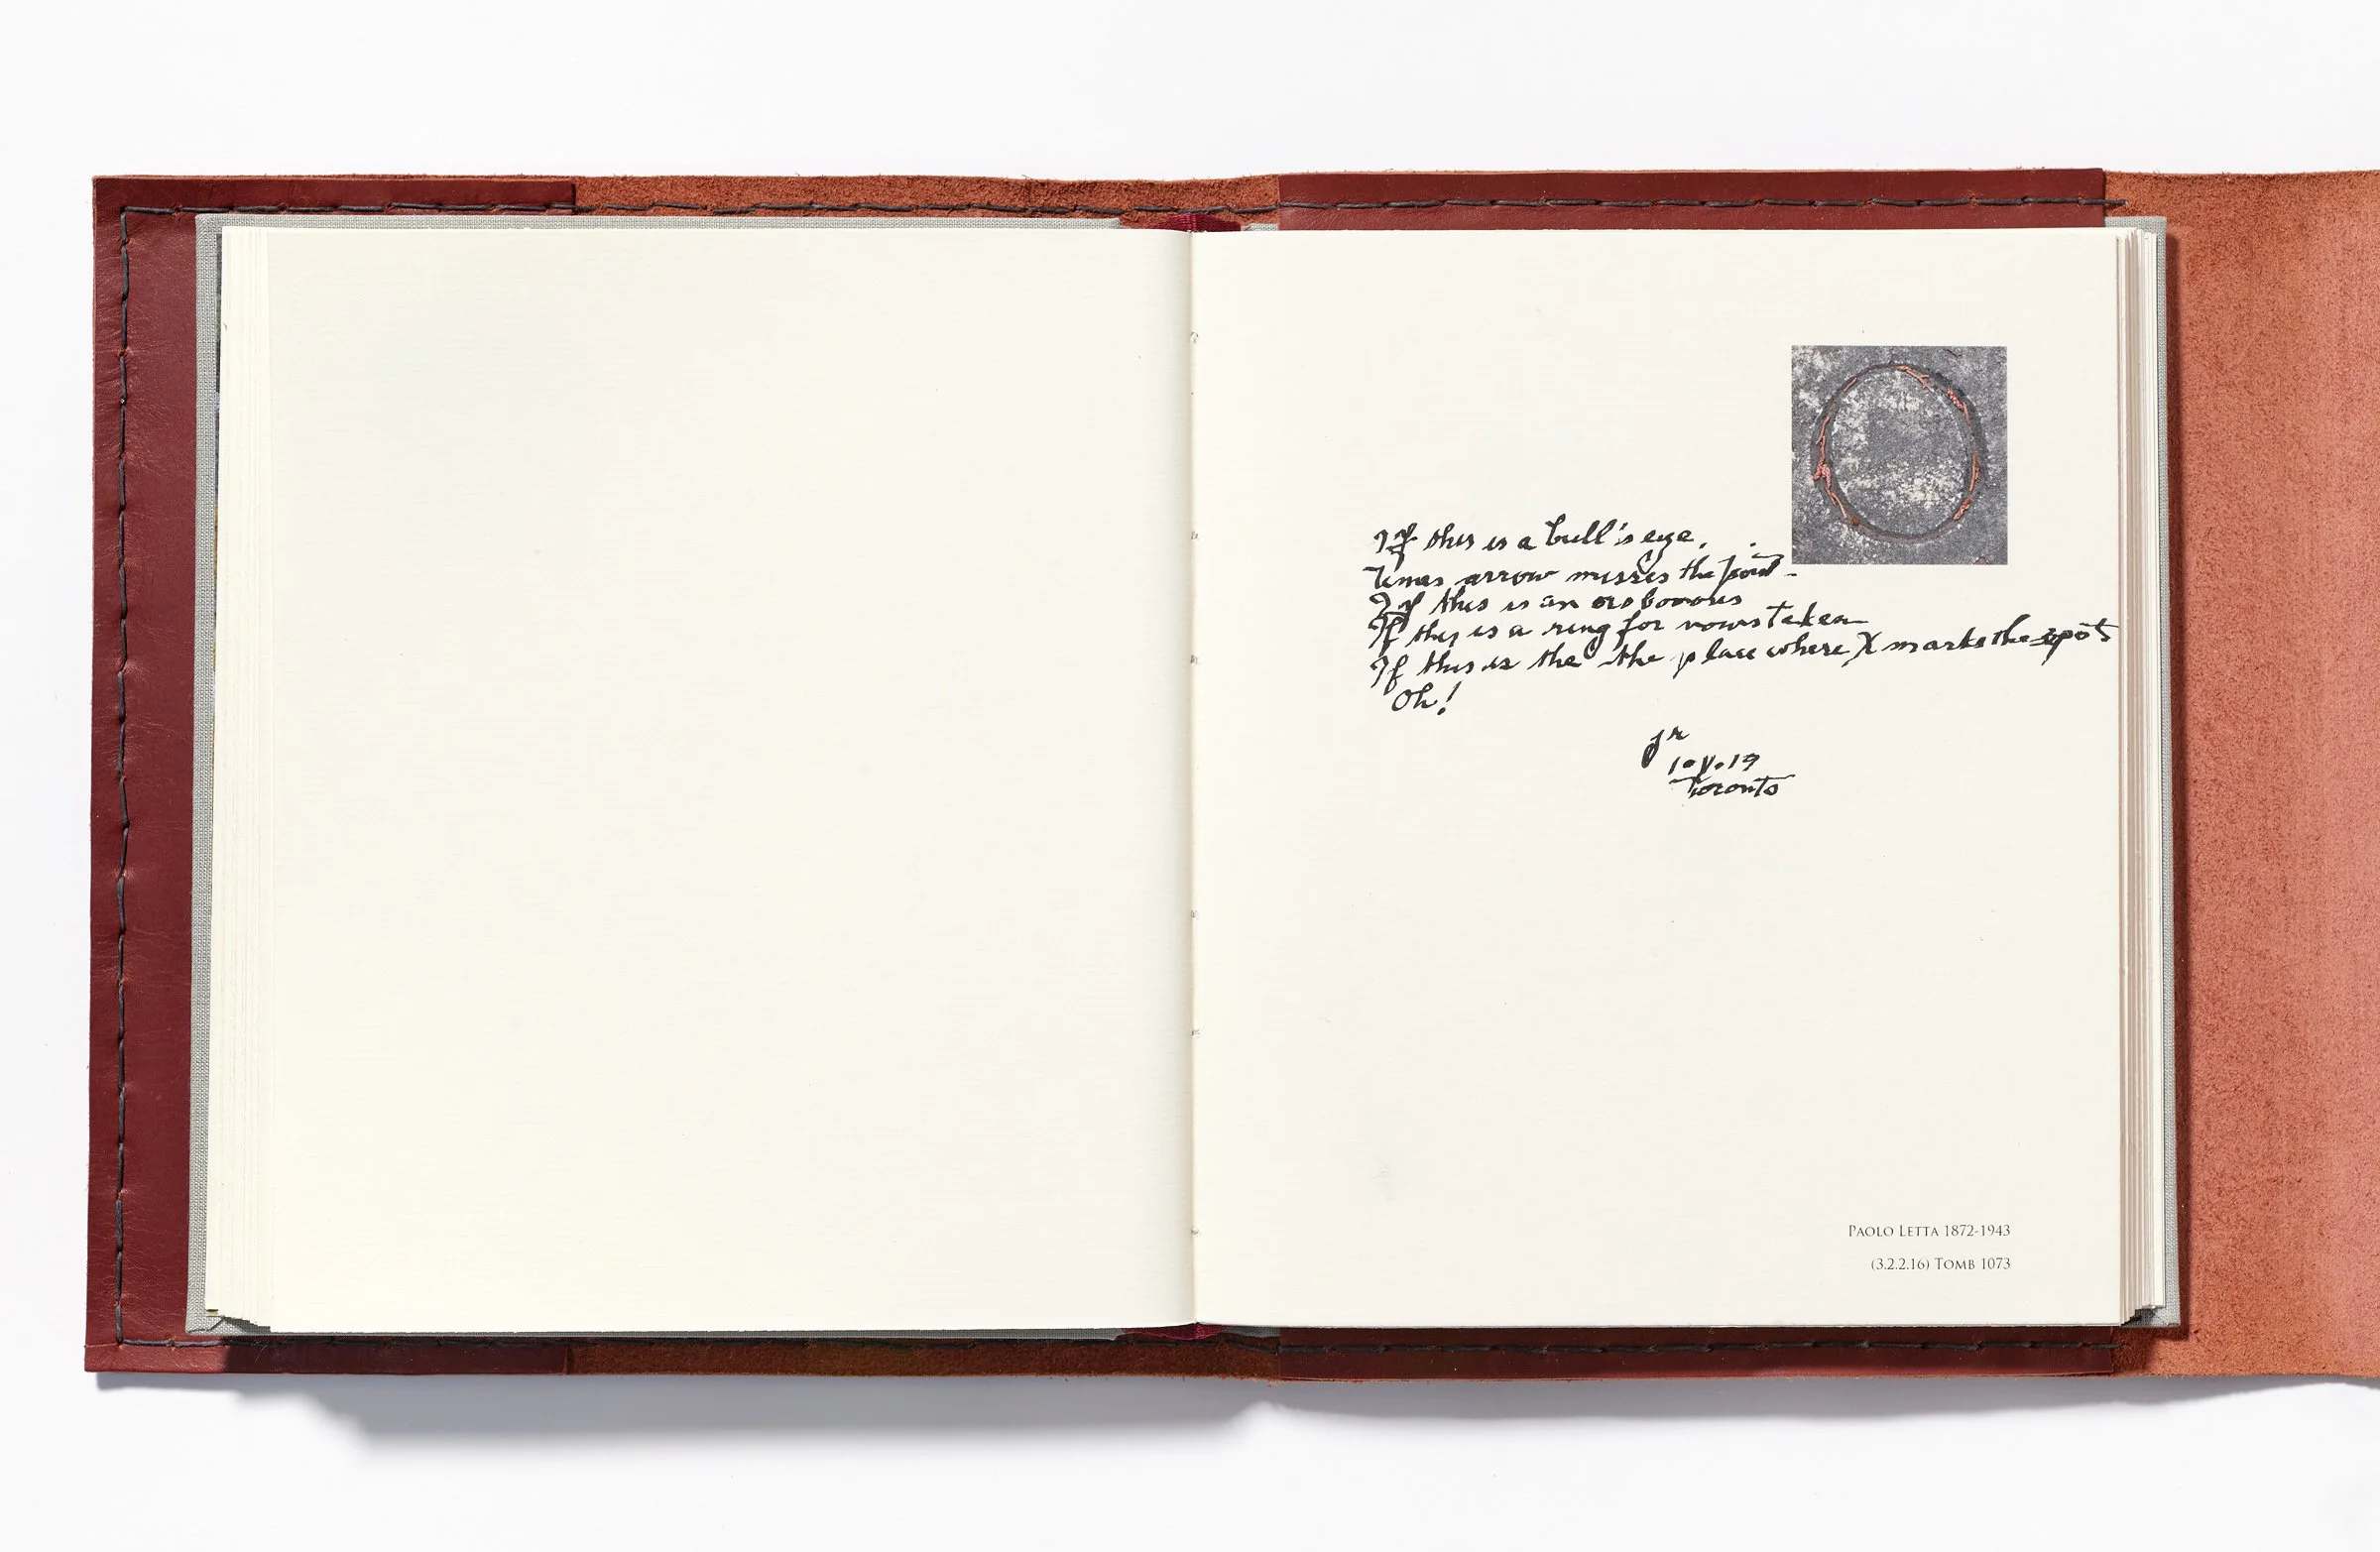 If this is a bull's eye,
Times arrow misses the point.
If this is an oroborous
If this is a ring for vows taken
If this is the the place where X marks the spot
Oh!
jr
10.V.19
Toronto
PAOLO LETTA 1872-1943
(3.2.2.16) TOMB 1073